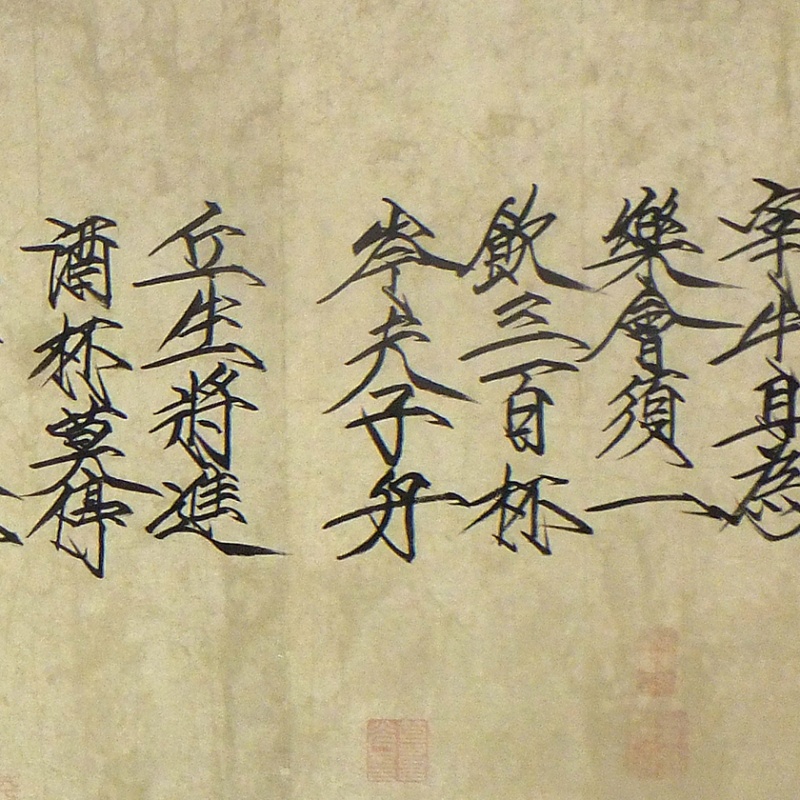 宰牛且為
樂會須一
飲三百杯
岑夫子丹
丘生將進
酒杯莫停